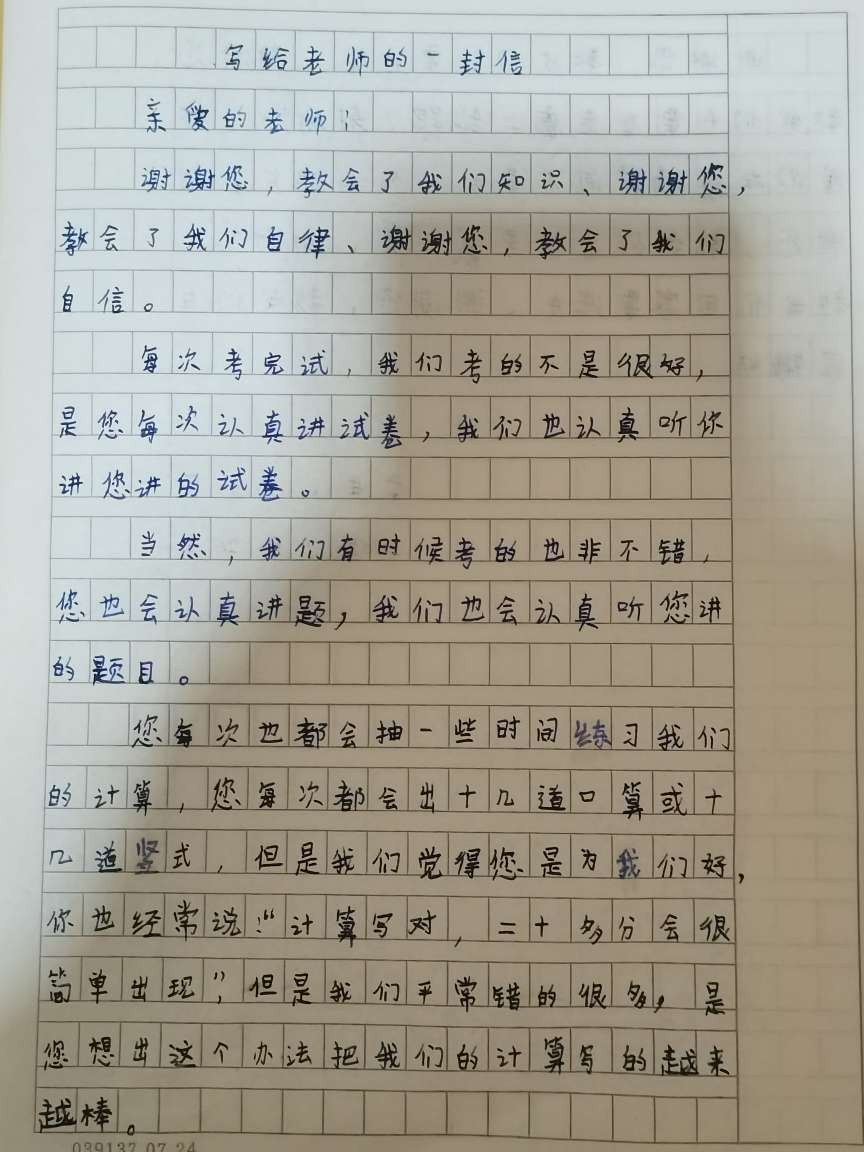 写给老师的一封信
亲爱的老师：
谢谢您，教会了我们知识、谢谢您，
教会了我们自律、谢谢您，教会了我们
自信。
每次考完试，我们考的不是很好，
是您每次认真讲试卷，我们也认真听你
讲您讲的试卷。
当然，我们有时候考的也非不错，
您也会认真讲题，我们也会认真听您讲
的题目。
您每次也都会抽一些时间练习我们
的计算，您每次都会出十几道口算或十
几道竖式，但是我们觉得您是为我们好，
你也经常说：“计算写对，二十多分会很
简单出现”，但是我们平常错的很多，是
您想出这个办法把我们的计算写的越来
越棒。
039137 07 24